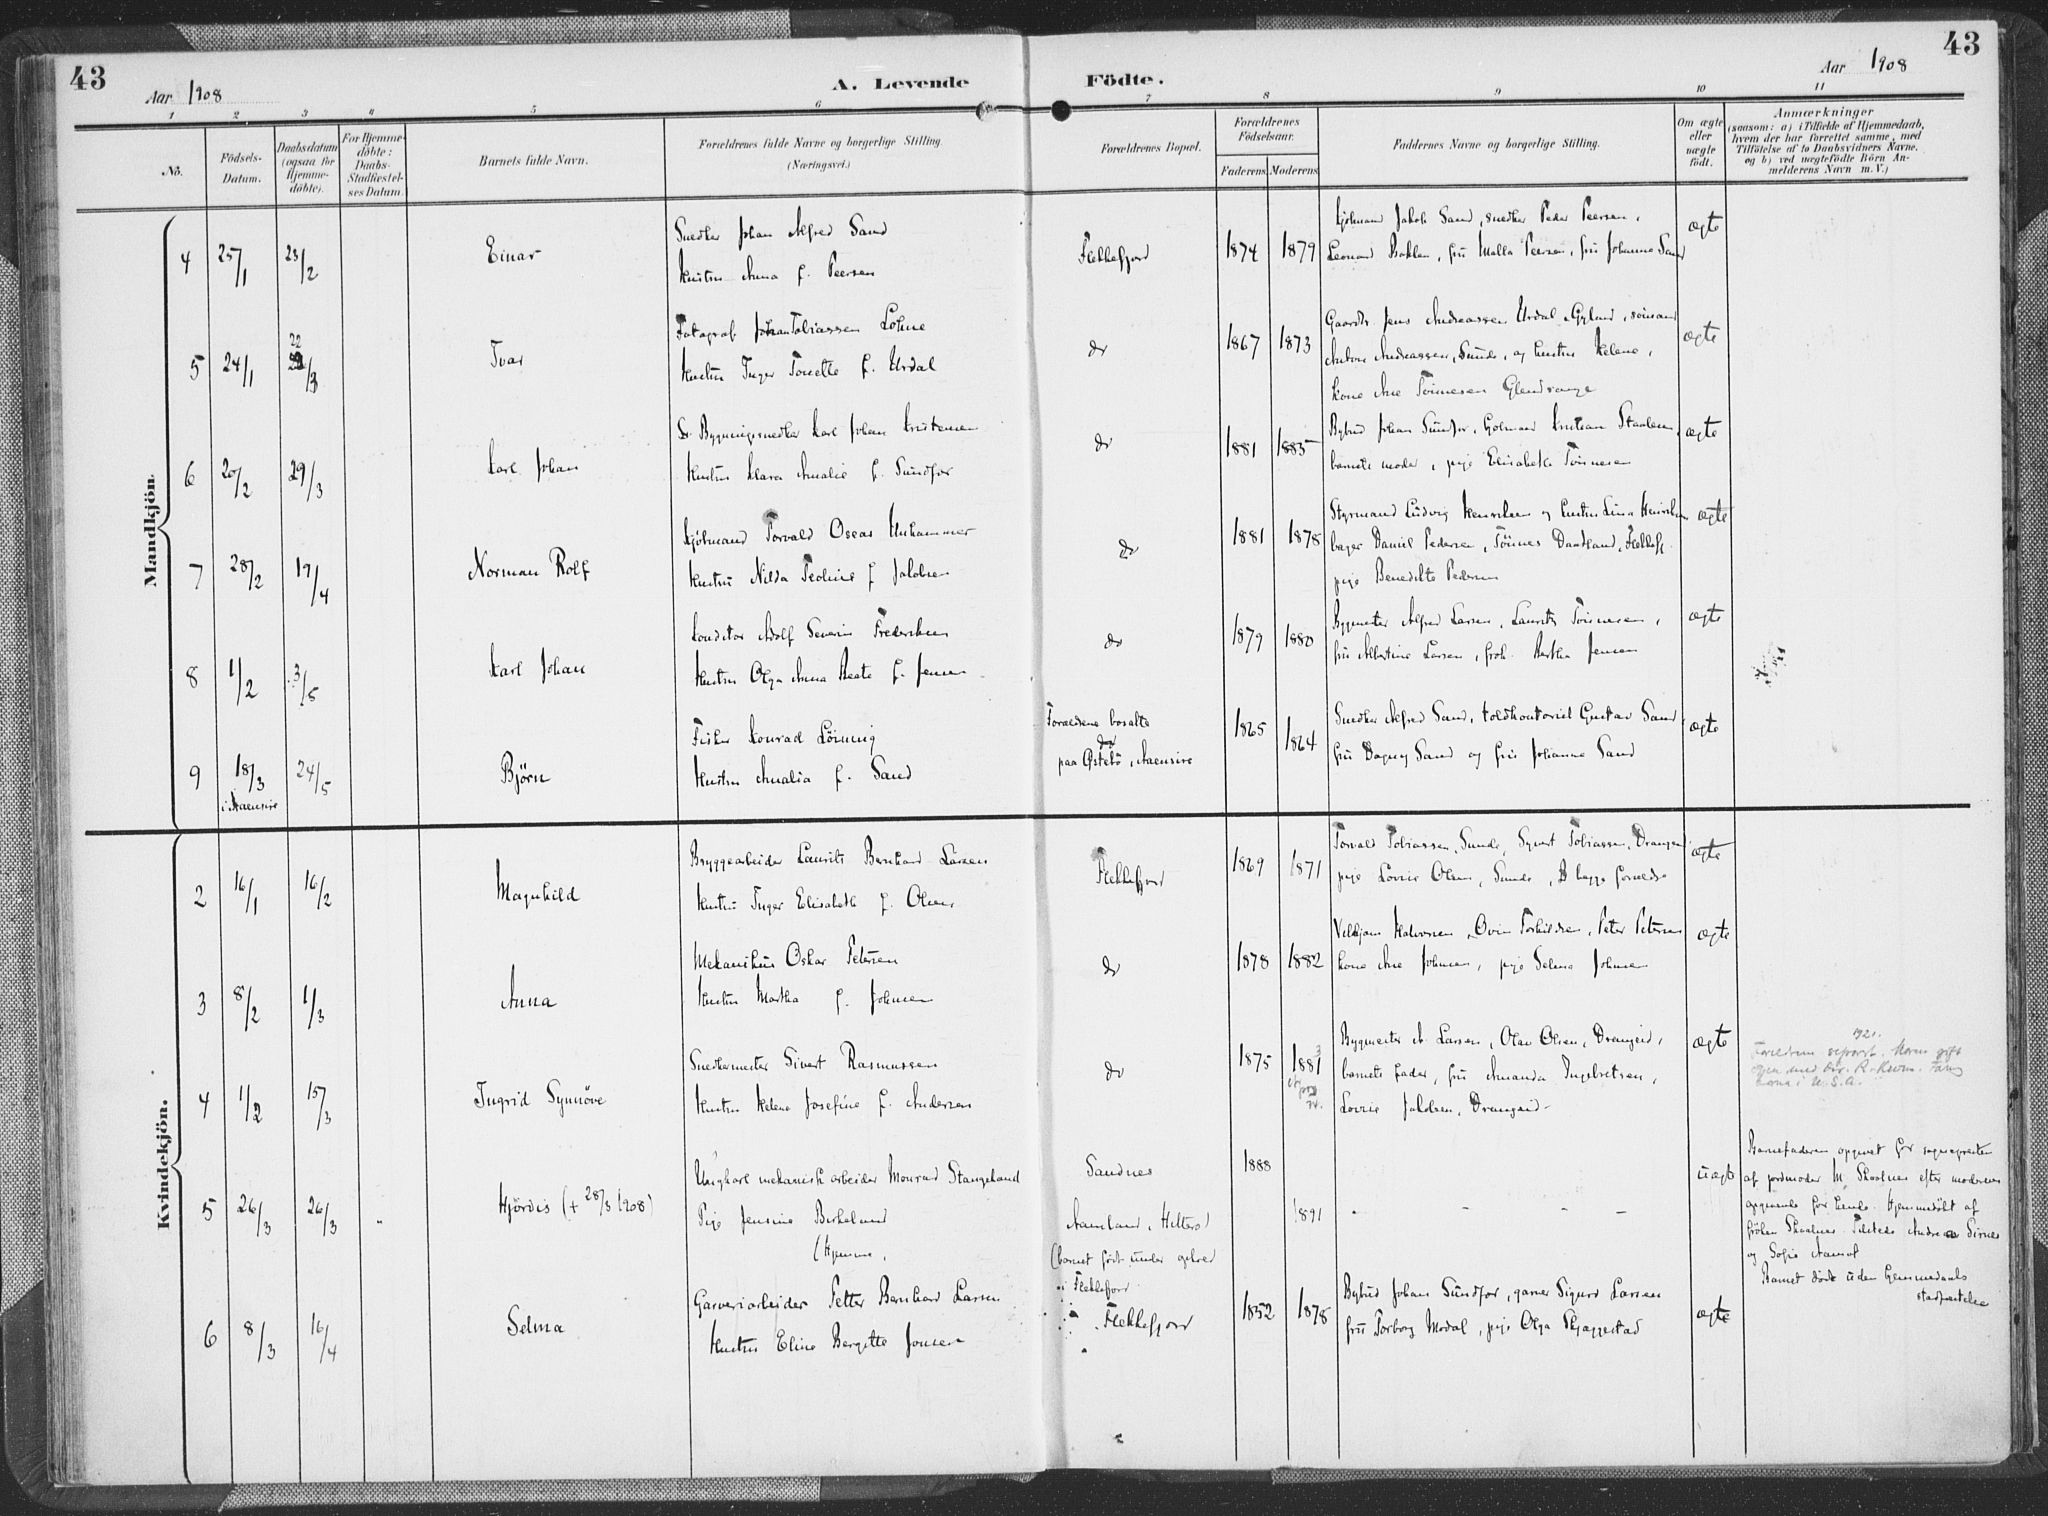 43
Aar 1908
A. Levende
Födte.
Aar 1908
43
1 2 3 4 5 6 7 8 9 10 11
No.
Födsels-Datum.
Daabsdatum (ogsaa for Hjemme-döbte).
For Hjemme-döbte: Daabs-Stadfæstel-ses Datum.
Barnets fulde Navn.
Forældrenes fulde Navne og borgerlige Stilling.
(Næringsvei.)
Forældrenes Bopæl.
Forældrenes Födselsaar.
Faderens Moderens
Faddernes Navne og borgerlige Stilling.
Om ægte eller uægte födt.
Anmærkninger
(saasom: a) i Tilfælde af Hjemmedaab,
hvem der har forrettet samme, med
Tilföielse af to Daabsvidners Navne.
og b) ved uægtefödte Börn An-
melderens Navn m. V.)
Mandkjön.
4 25/1 23/2 Einar
Snedker Johan Alfred Sand
Hustru Anna f. Peersen
Flekkefjord 1874 1879
Jakob Sand, snedker Peder Peersen,
Leonard Bakken, fru Malla Peersen, fru Johanne Sand
ægte
5 24/1 22/3 Ivar
Fotograf Johan Tobiassen Lohne
Hustru Inger Tonette f. Urdal
do 1867 1873
Gaardbr. Jens Andreassen Urdal, Gyland, sömand
Anton Andreassen, Sunde, og hustru Helene,
kone Ane Tönnesen Glendrange
ægte
6 20/2 29/3 Karl Johan
Bygningssnedker Karl Johan Kristensen
Hustru Klara Amalie f. Sundfor
do 1881 1885
Bybud Johan Sundfor, Kristian Staalesen,
barnets moder, pige Elisabeth Tönnesen
ægte
7 28/2 17/4 Norman Rolf
Kjöbmand Torvald Oscar Unhammer
Hustru Nilda Teoline f. Jakobsen
do 1881 1878
Styrmand Ludvig Henriksen og hustru Lina Henriksen
bager Daniel Pedersen, Tönnes Dandland, Flekkefj.
pige Benedikte Pedersen
ægte
8 1/2 3/5 Karl Johan
Konditor Adolf Severin Frederiksen
Hustru Olga Anna Beate f. Jensen
do 1879 1880
Bygmester Alfred Larsen, Laurits Tönnesen,
fru Albertine Larsen, frök. Bertha Jensen
ægte
9 18/3 24/5 Björn
i Aaensire
Fisker Konrad Löining
Hustru Amalia f. Sand
Forældrene bosatte
paa Östebö, Aaensire
1865 1864
Snedker Alfred Sand, toldkontorist Gustav Sand,
fru Dagny Sand og fru Johanne Sand
ægte
Kvindekjön.
2 16/1 16/2 Magnhild
Bryggearbeider Laurits Bernhard Larsen
Hustru Inger Elisabeth f. Olsen
Flekkefjord 1869 1871
Torvald Tobiassen, Sunde, Syvert Tobiassen, Drangeid
pige Lovise Olsen, Sunde, Begge forældre
ægte
3 8/2 1/3 Anna
Mekanikus Oskar Petersen
Hustru Martha f. Johnsen
do 1878 1882
Villjam Halvorsen, Ovin Torkildsen, Peter Petersen
kone Ane Johnsen, pige Selma Johnsen
ægte
4 1/2 15/3 Ingrid Synnöve
Snedkermester Sivert Rasmussen
Hustru Helene Josefine f. Andersen
do 1875 1881
Bygmester A. Larsen, Olav Olsen, Drangeid,
barnets fader, fru Amanda Ingebretsen,
Lovise Jakobsen, Drangeid
ægte
1921.
Forældrene separert. Moren gift
igjen med
i U.S.A.
5 26/3 26/3 " Hjördis (+ 28/3 1908)
Ungkarl mekanisk arbeider Monrad Stangeland
Pige Jensine Birkeland
(Hjemme,
Sandnes
Aamland, Hitterö
(barnet födt under ophold
i Flekkefjord
1888
1891
- - - -
uægte
Barnefaderen opgivet for sognepresten
af jordmoder M. Skaalnes efter moderens
opgivende for hende. Hjemmedöbt af
fröken Skaalnes. Tilstede Andreas Sirnes
og Sofie Aamot
Barnet döde uden hjemmedaabs
stadfæstelse
6 8/3 16/4 Selma
Garveriarbeider Petter Bernhard Larsen
Hustru Eline Bergitte Jonsen
Flekkefjord 1852 1878
Bybud Johan Sundfor, garver Sigurd Larsen
fru Torborg Modal, pige Olga Skjaggestad
ægte